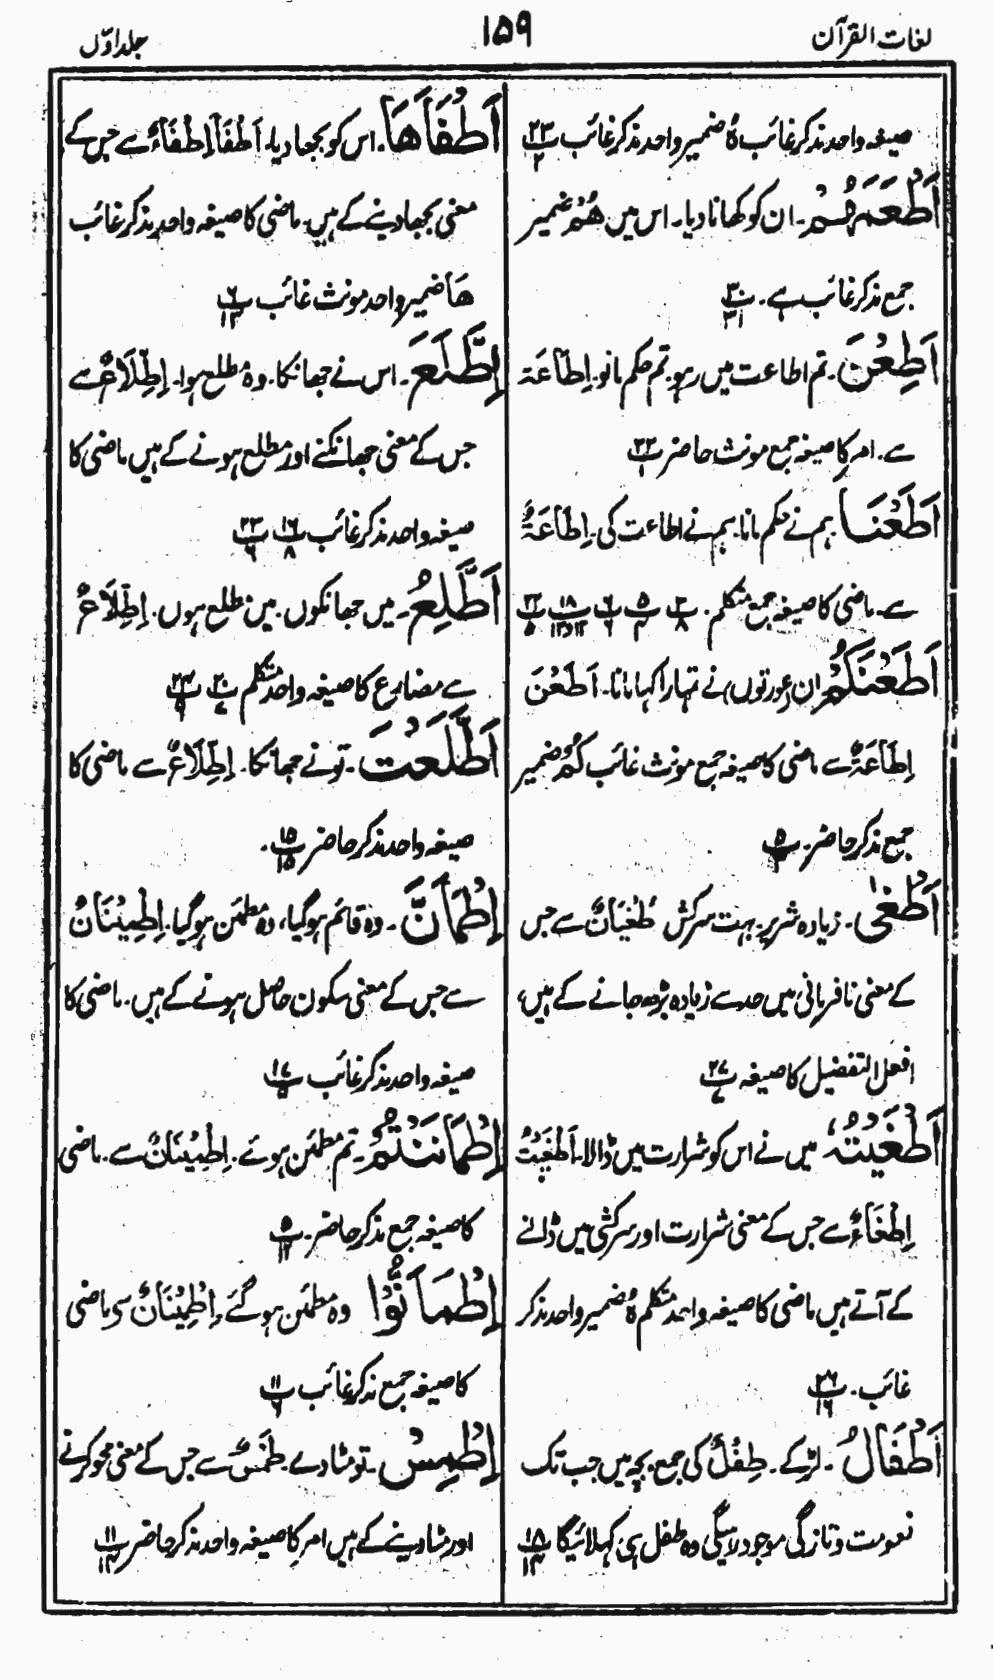 لغات القرآن
۱۵۹
جلد اوّل
صیغہ واحد مذکر غائب ہٗ ضمیر واحد مذکر غائب پ۲۳ ۲
اَطْعَمَهُمْ۔ ان کو کھانا دیا۔ اس میں هُمْ ضمیر
جمع مذکر غائب ہے۔ پ۳۰ ۳۱
اَطِعْنَ۔ تم اطاعت میں رہو۔ تم حکم مانو۔ اِطَاعَة
سے۔ امر کا صیغہ جمع مونث حاضر پ۲۲ ۱
اَطَعْنَا۔ ہم نے حکم مانا۔ ہم نے اطاعت کی۔ اِطَاعَةٌ
سے۔ ماضی کا صیغہ جمع متکلم۔ پ۳ ۸ پ۵ ۴ پ۶ ۶ پ۱۸ ۱۲و۱۳ پ۲۲ ۵
اَطَعْنَكُمْ ان (عورتوں) نے تمہارا کہا مانا۔ اَطَعْنَ
اِطَاعَةٌ سے ماضی کا صیغہ جمع مونث غائب كُمْ ضمیر
جمع مذکر حاضر۔ پ۵
اَطْغٰی۔ زیادہ شریر۔ بہت سرکش طُغْیَانٌ سے جس
کے معنی نافرمانی میں حد سے زیادہ بڑھ جانے کے ہیں،
افعل التفضیل کا صیغہ پ۲۷ ۷
اَطْغَیْتُهٗ میں نے اس کو شرارت میں ڈالا۔ اَطْغَیْتُ
اِطْغَاءٌ سے جس کے معنی شرارت اور سرکشی میں ڈالنے
کے آتے ہیں ماضی کا صیغہ واحد متکلم هٗ ضمیر واحد مذکر
غائب۔ پ۲۶ ۱۶
اَطْفَالُ۔ لڑکے۔ طِفْلٌ کی جمع۔ بچہ میں جب تک
نعومت و تازگی موجود رہیگی وہ طفل ہی کہلائیگا پ۱۸ ۱۴
اَطْفَاَهَا۔ اس کو بجھا دیا۔ اَطْفَأَ اِطْفَاءٌ سے جس کے
معنی بجھا دینے کے ہیں۔ ماضی کا صیغہ واحد مذکر غائب
هَا ضمیر واحد مونث غائب پ۶ ۱۳
اِطَّلَعَ۔ اس نے جھانکا۔ وہ مطلع ہوا۔ اِطِّلَاعٌ سے
جس کے معنی جھانکنے اور مطلع ہونے کے ہیں ماضی کا
صیغہ واحد مذکر غائب پ۱۶ ۸ پ۲۳ ۶
اَطَّلِعُ۔ میں جھانکوں۔ میں مطلع ہوں۔ اِطِّلَاعٌ
سے مضارع کا صیغہ واحد متکلم پ۲۰ ۷ پ۲۴ ۹
اَطَّلَعْتَ۔ تونے جھانکا۔ اِطِّلَاعٌ سے ماضی کا
صیغہ واحد مذکر حاضر پ۱۵ ۱۵۔
اِطْمَاَنَّ۔ وہ قائم ہوگیا، وہ مطمئن ہوگیا۔ اِطْمِیْنَانٌ
سے جس کے معنی سکون حاصل ہونے کے ہیں۔ ماضی کا
صیغہ واحد مذکر غائب پ۱۷
اِطْمَاْنَنْتُمْ۔ تم مطمئن ہوئے۔ اِطْمِیْنَانٌ سے۔ ماضی
کا صیغہ جمع مذکر حاضر۔ پ۵ ۱۲
اِطْمَاَنُّوْا وہ مطمئن ہوگئے۔ اِطْمِیْنَانٌ سی ماضی
کا صیغہ جمع مذکر غائب پ۱۱ ۶
اِطْمِسْ۔ تو مٹا دے۔ طَمْسٌ سے جس کے معنی محو کرنے
اور مٹا دینے کے ہیں امر کا صیغہ واحد مذکر حاضر پ۱۱ ۱۴